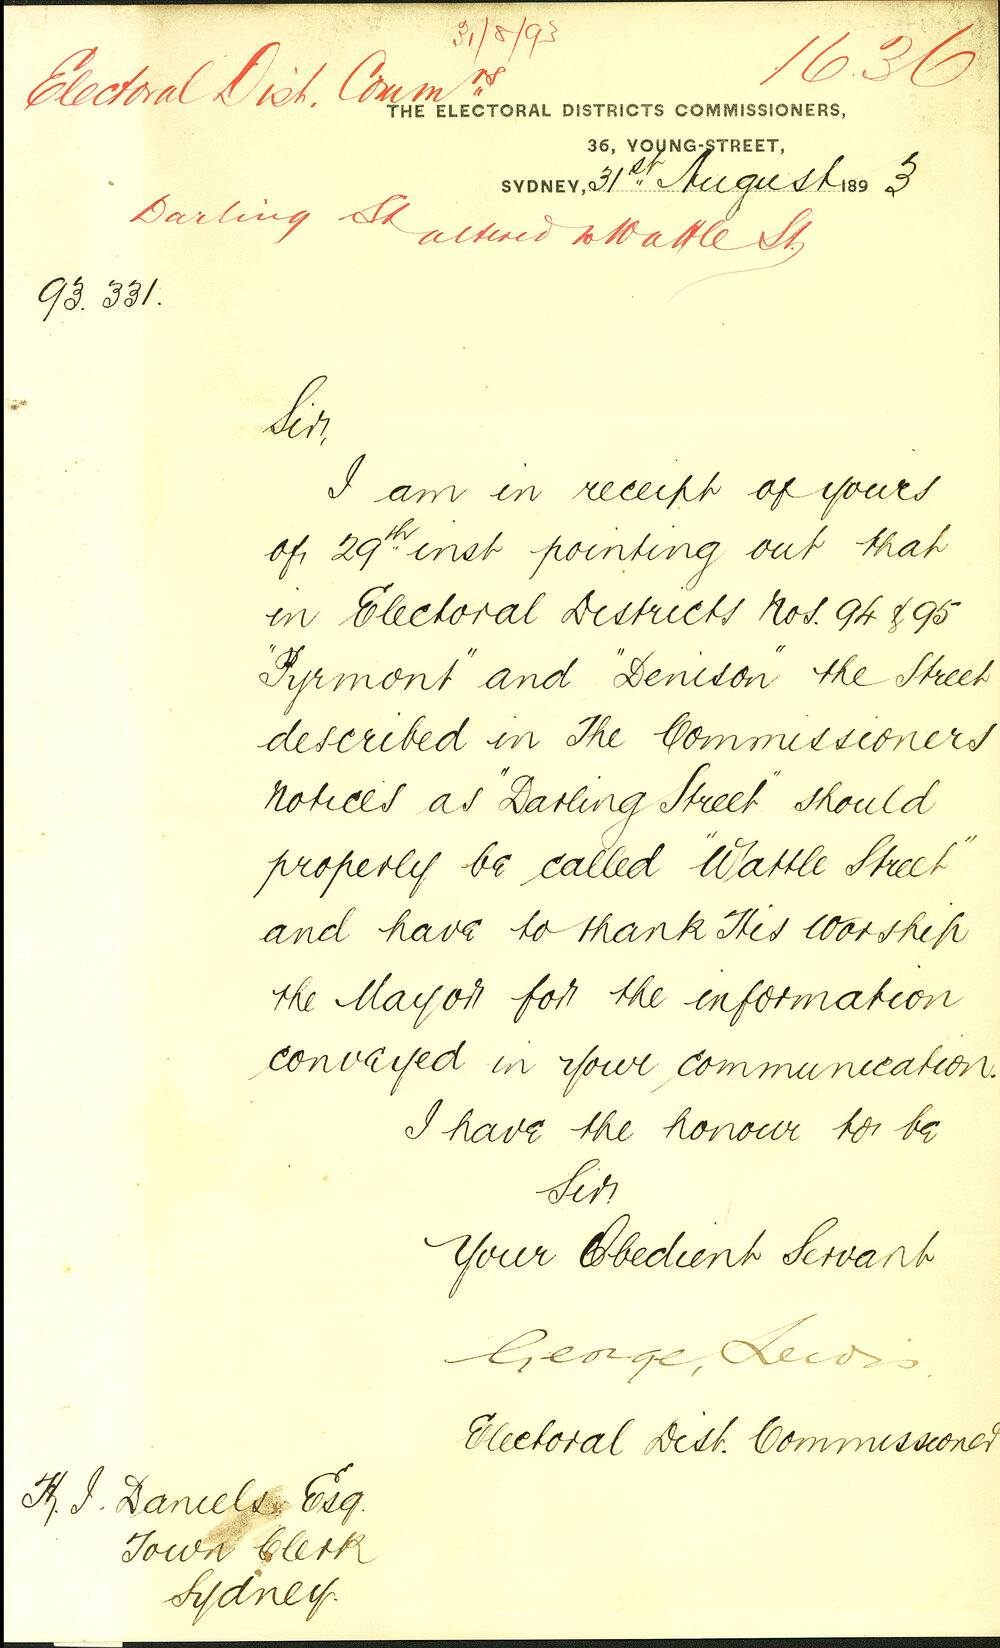 31/8/93
1636
Electoral Dist. Commrs
THE ELECTORAL DISTRICTS COMMISSIONERS,
36, YOUNG-STREET,
SYDNEY, 31st August 1893
Darling St altered to Wattle St.
93. 331.
Sir,
I am in receipt of yours
of 29th inst pointing out that
in Electoral Districts Nos. 94 & 95
"Pyrmont" and "Denison" the Street
described in The Commissioners
Notices as "Darling Street" should
properly be called "Wattle Street"
and have to thank His Worship
the Mayor for the information
conveyed in your communication.
I have the honour to be
Sir
Your Obedient Servant
George Lewis.
Electoral Dist. Commissioner
H. J. Daniels Esq.
Town Clerk
Sydney.